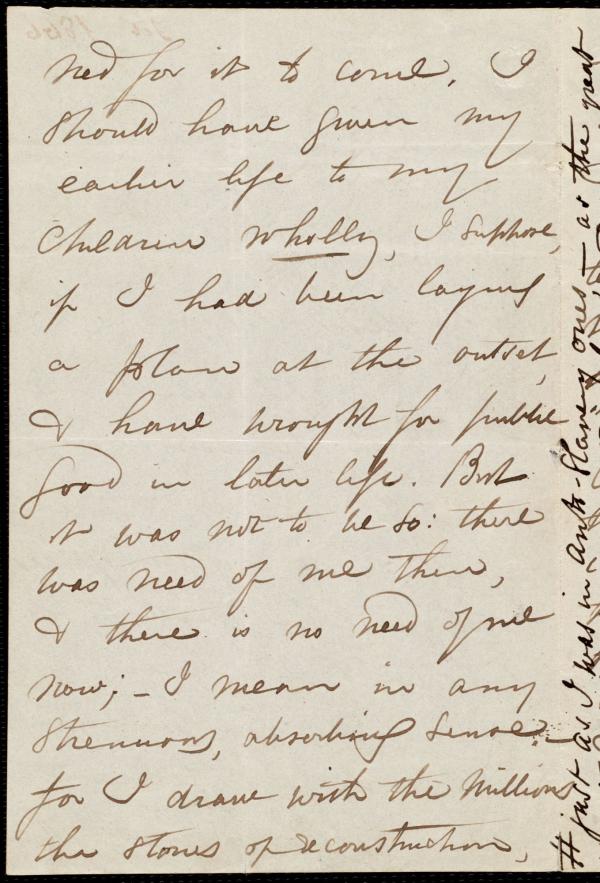 need for it to come. I
should have given my
earlier life to my
children wholly, I suppose,
if I had been laying
a plan at the outset,
& have wrought for public
good in later life. But
it was not to be so: there
was need of me then,
& there is no need of me
now; – I mean in any
strenuous, absorbing sense.
for I draw with the millions
the stones of reconstruction,
# just as I was in Anti-Slavery ones – as the great